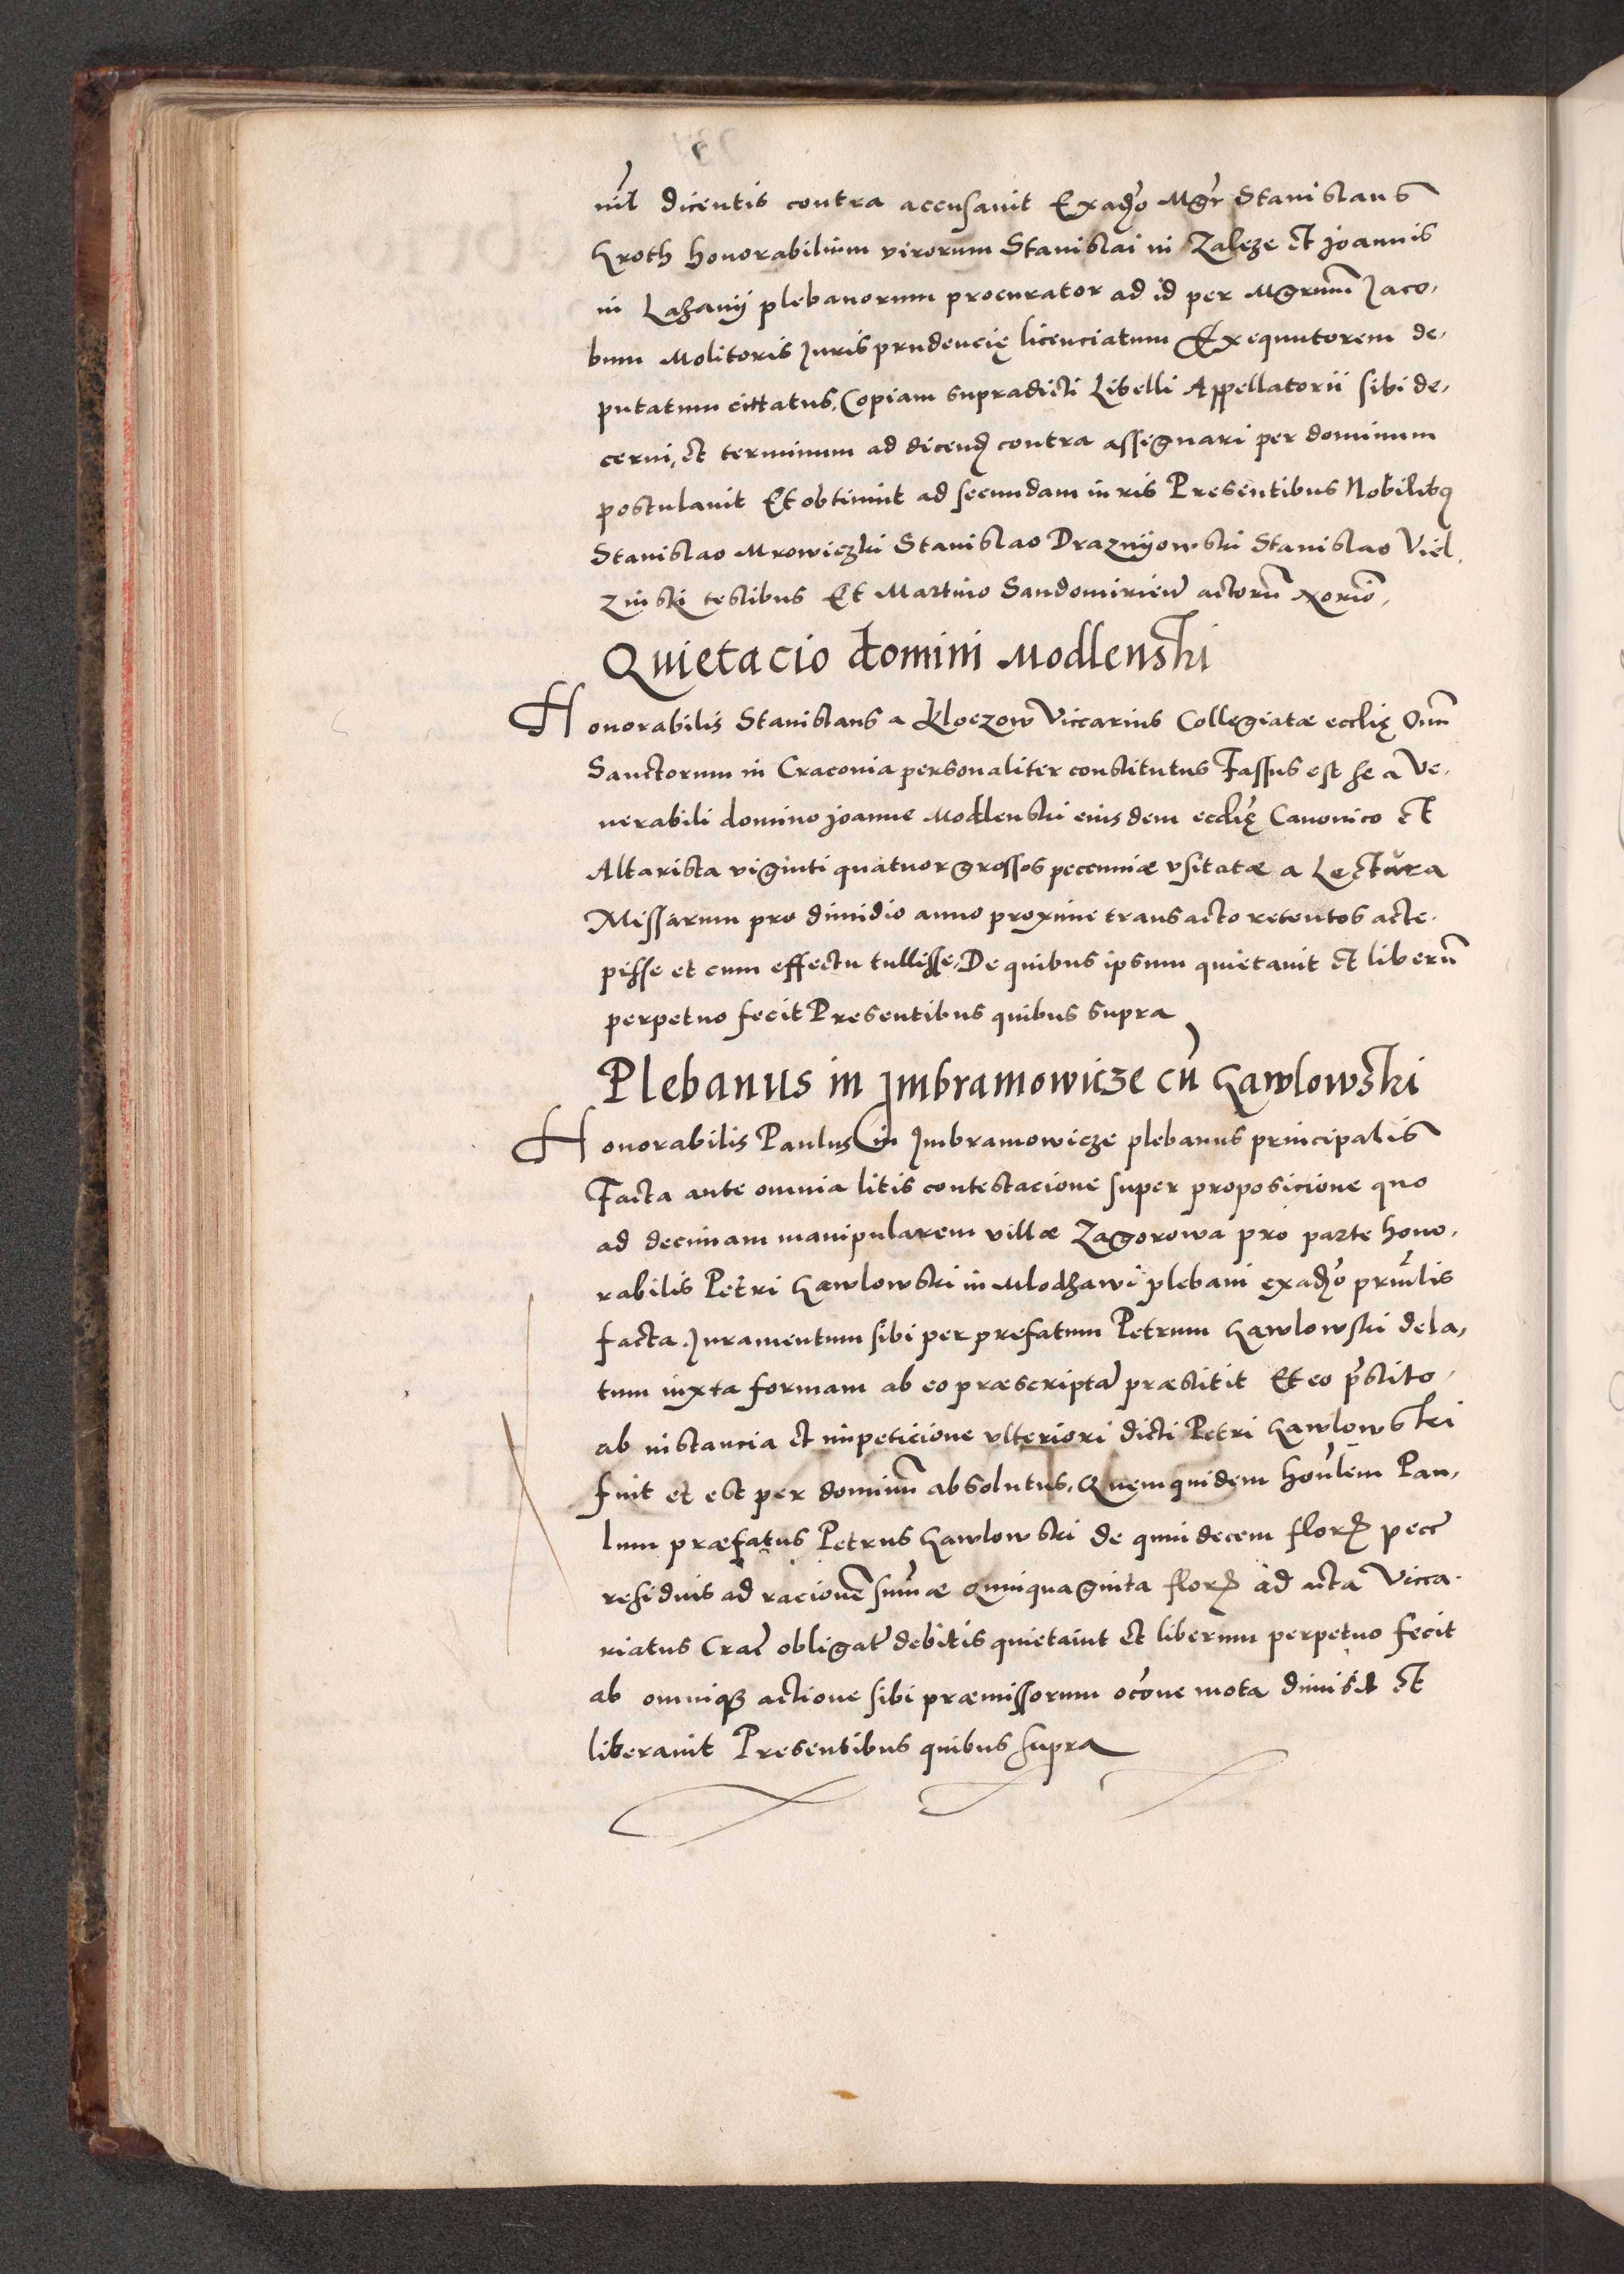 nil dicentis contra accusavit Exadio Mgr Stanislaus
Groth honorabilium virorum Stanislai in Zalęze et Joannis
in Lazanij plebanorum procurator ad id per Mgrum Jaco,
bum Molitoris Jurisprudencię licenciatum Exequutorem de,
putatum cittatus, Copiam supradicti Libelli Appellatorii sibi de,
cerni, et terminum ad dicend contra assegnari per dominum
postulavit Et obtinuit ad secundam iuris Presentibus Nobilibq
Stanislao Mrowiczki Stanislao Draznijowski Stanislao Viel,
zinski testibus Et Martino Sandomirien actoru xorio,
Quietacio domini Modlenski
Honorabilis Stanislaus a Kloczow Viccarius Collegiatæ ecclię Oim
Sanctorum in Craconia personaliter constitutus Fassus est se a Ve,
nerabili domino Joanne Modlenski eiusdem ecclię Canonico et
Altarista viginti quatuor grossos peccuniæ vsitatæ a Lectura
Missarum pro dimidio anno proxime transacto retentos acte,
pisse et cum effectu tullisse, De quibus ipsum quietavit et liberu
perpetuo fecit Presentibus quibus supra
Plebanus in Imbramowicze cu Gawlowski
Honorabilis Paulus in Imbramowicze plebanus principalis
Facta ante omnia litis contestacione super proposicione quo
ad decimam manipularem villæ Zagorowa pro parte hono,
rabilis Petri Gawlowski in Mlodzawi plebani exadio prinlis
facta. Juramentum sibi per prefatum Petrum Gawlowski dela,
tum iuxta formam ab eo præscripta præstitit Et eo pstito,
ab instancia et impeticione vlteriori dicti Petri Gawlowski
fuit et est per dominu absolutus, Quemquidem honlem Pau,
lum præfatus Petrus Gawlowski de quindecem flor pecc
residuis ad racione sumæ Quinquaginta flor ad acta Vicca,
riatus Crac obligat debitis quietavit et liberum perpetuo fecit
ab omniq actione sibi præmissorum occone mota dimisit et
liberavit Presentibus quibus supra